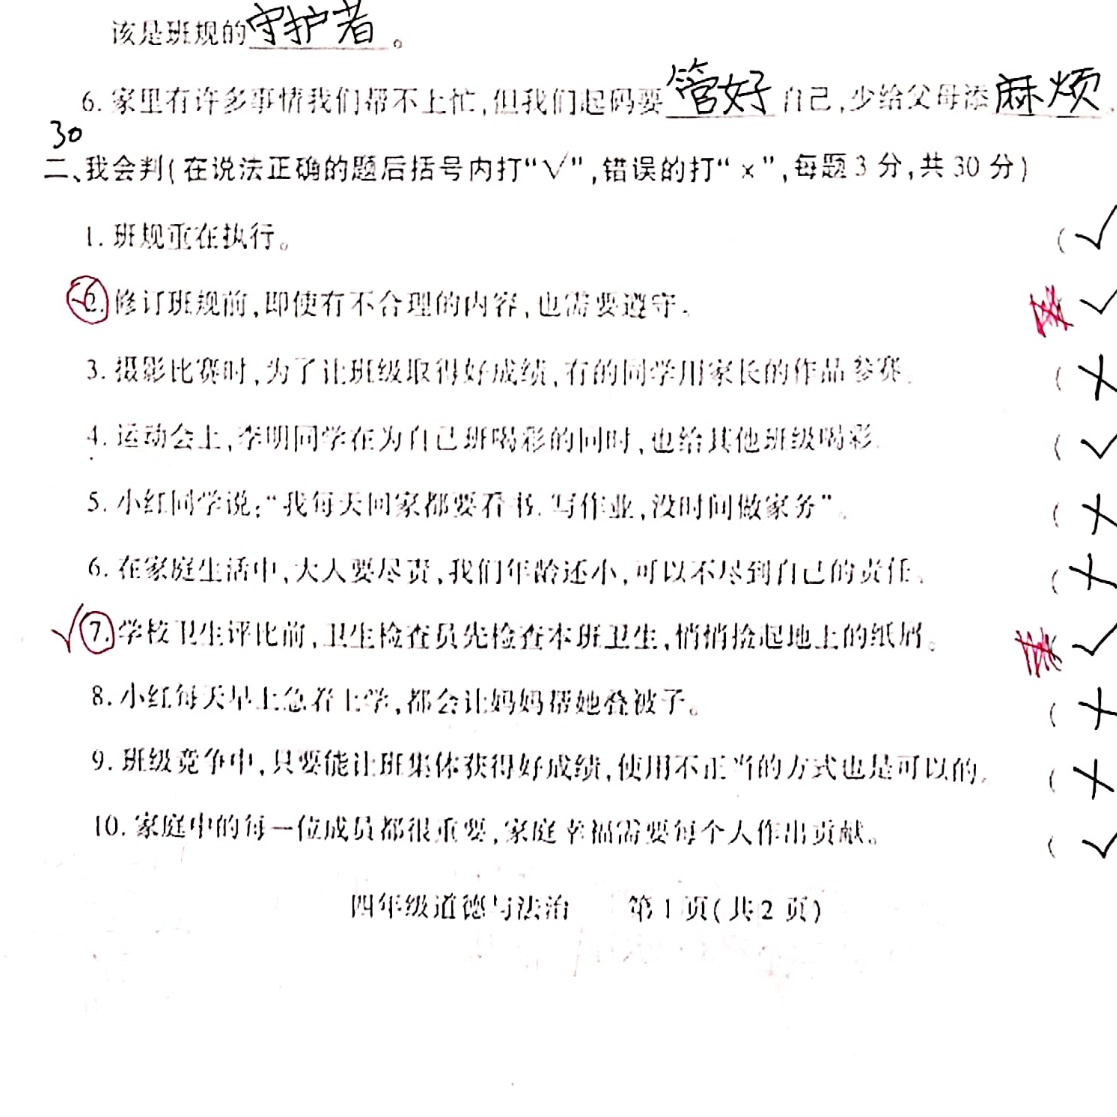 该是班规的守护者。
6. 家里有许多事情我们帮不上忙,但我们起码要管好自己,少给父母添麻烦
30
二、我会判(在说法正确的题后括号内打“√”,错误的打“×”,每题3分,共30分)
1. 班规重在执行。 ( √
2. 修订班规前,即使有不合理的内容,也需要遵守。 √
3. 摄影比赛时,为了让班级取得好成绩,有的同学用家长的作品参赛。 ( ×
4. 运动会上,李明同学在为自己班喝彩的同时,也给其他班级喝彩。 ( √
5. 小红同学说:“我每天回家都要看书、写作业,没时间做家务”。 ( ×
6. 在家庭生活中,大人要尽责,我们年龄还小,可以不尽到自己的责任。 ( ×
√ 7. 学校卫生评比前,卫生检查员先检查本班卫生,悄悄捡起地上的纸屑。 √
8. 小红每天早上急着上学,都会让妈妈帮她叠被子。 ( ×
9. 班级竞争中,只要能让班集体获得好成绩,使用不正当的方式也是可以的。 ( ×
10. 家庭中的每一位成员都很重要,家庭幸福需要每个人作出贡献。 ( √
四年级道德与法治 第1页(共2页)